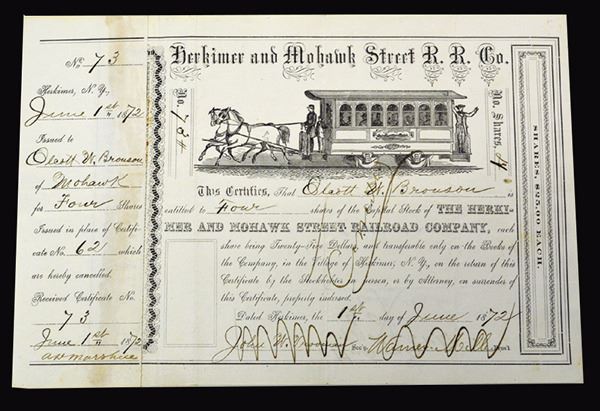 No. 73
Herkimer, N. Y.,
June 1st 1872
Issued to
Olcott W. Bronson
of Mohawk
for Four Shares
Issued in place of Certifi-
cate No. 62 which
are hereby cancelled.
Received Certificate No.
73
June 1st 1872
Herkimer and Mohawk Street R. R. Co.
No. 73
No. Shares, 4
This Certifies, That Olcott W. Bronson is
entitled to Four shares of the Capital Stock of THE HERKI-
MER AND MOHAWK STREET RAILROAD COMPANY, each
share being Twenty-Five Dollars, and transferable only on the Books of
the Company, in the Village of Herkimer, N. Y., on the return of this
Certificate by the Stockholder in person, or by Attorney, on surrender of
this Certificate, properly indorsed.
Dated Herkimer, the 1st day of June 1872
John W. Sec'y. Warner Pres't
SHARES, $25.00 EACH.